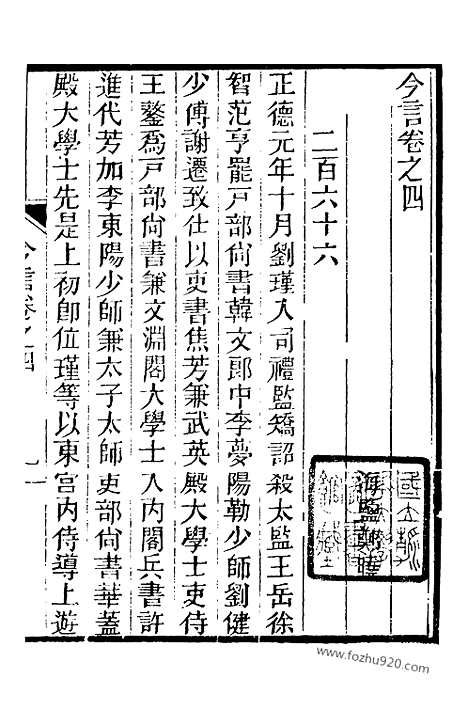 今言卷之四
海鹽鄭曉
二百六十六
正德元年十月劉瑾入司禮監矯詔殺太監王岳徐
智范亨罷戸部尚書韓文郎中李夢陽勒少師劉健
少傅謝遷致仕以吏書焦芳兼武英殿大學士吏侍
王鏊爲戸部尚書兼文淵閣大學士入内閣兵書許
進代芳加李東陽少師兼太子太師吏部尚書華蓋
殿大學士先是上初卽位瑾等以東宮内侍導上遊
今言卷之四
www.fozhu920.com